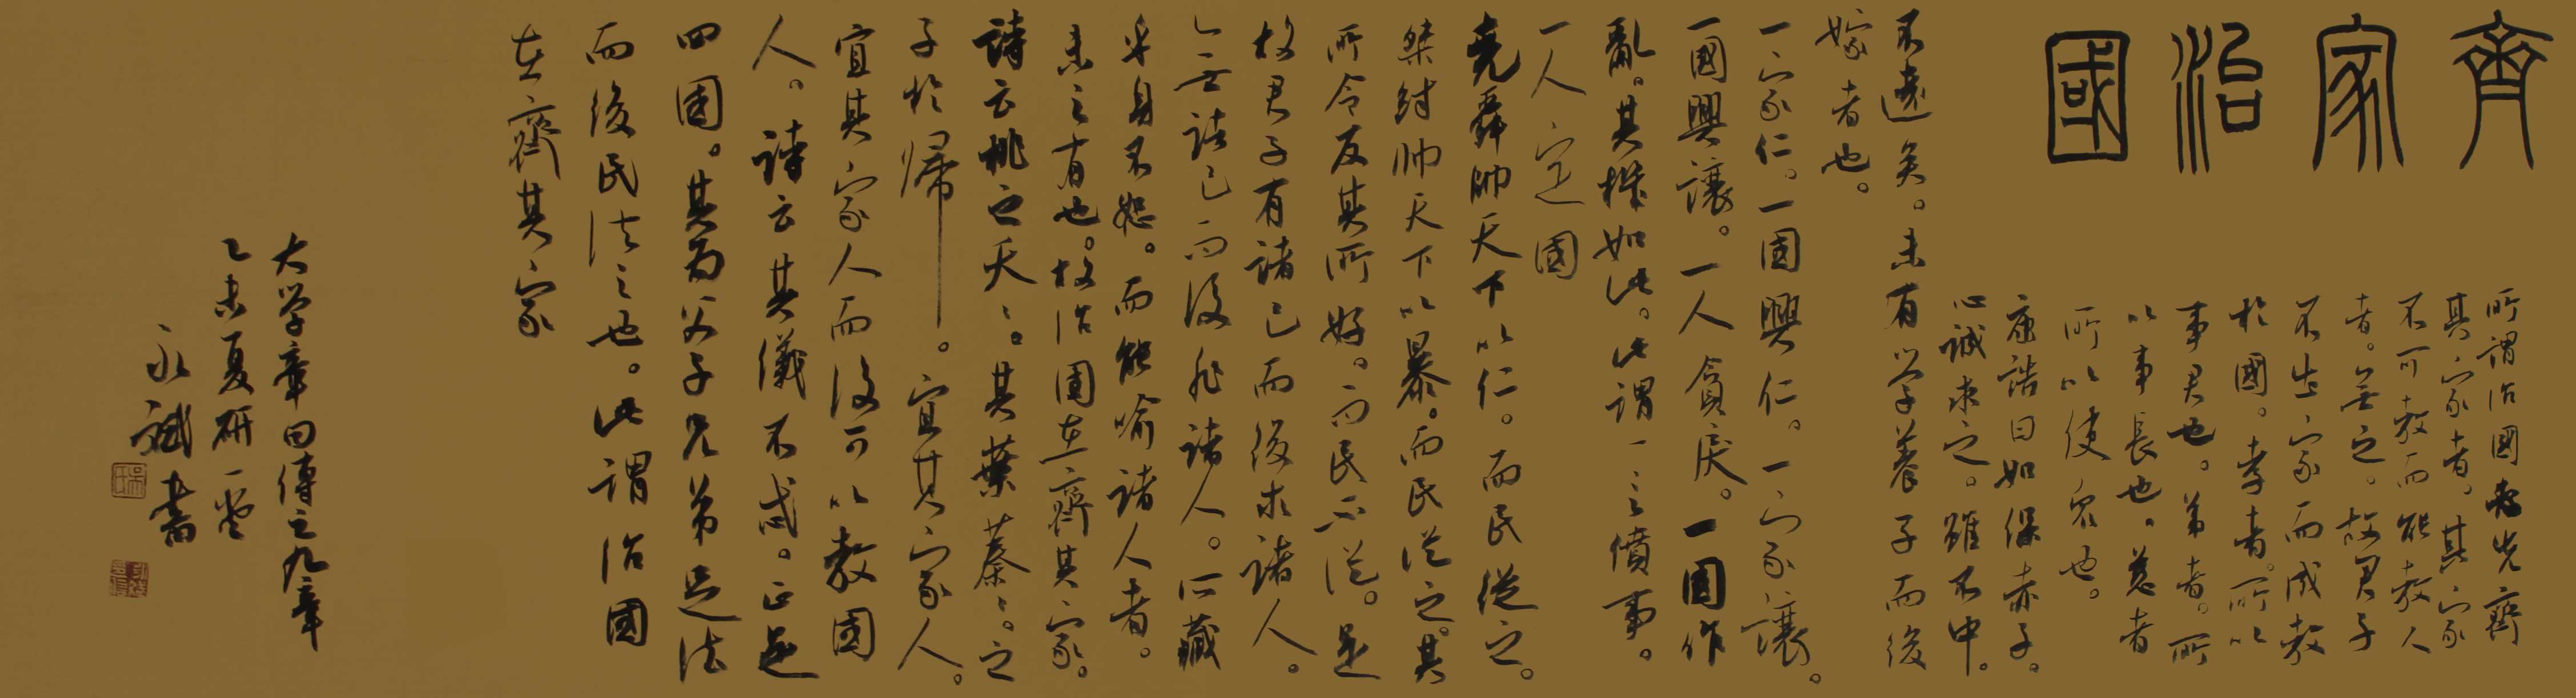 齊家治國
所謂治國必先齊
其家者。其家
不可教而能教人
者。無之。故君子
不出家而成教
於國。孝者。所以
事君也。弟者。所
以事長也。慈者
所以使眾也。
康誥曰如保赤子。
心誠求之。雖不中。
不遠矣。未有学養子而後
嫁者也。
一家仁。一国興仁。一家讓。
一國興讓。一人貪戾。一国作
亂。其機如此。此謂一言僨事。
一人定國
堯舜帥天下以仁。而民從之。
桀紂帥天下以暴。而民從之。其
所令反其所好。而民不從。是
故君子有諸己而後求諸人。
無諸己而後非諸人。所藏
乎身不恕。而能喻諸人者。
未之有也。故治国在齊其家。
詩云桃之夭〻。其葉蓁〻。之
子於帰。宜其家人。
宜其家人而後可以教國
人。詩云其儀不忒。正是
四国。其為父子兄弟足法
而後民法之也。此謂治國
在齊其家
大学章曰傳之九章
乙未夏研一
永斌書